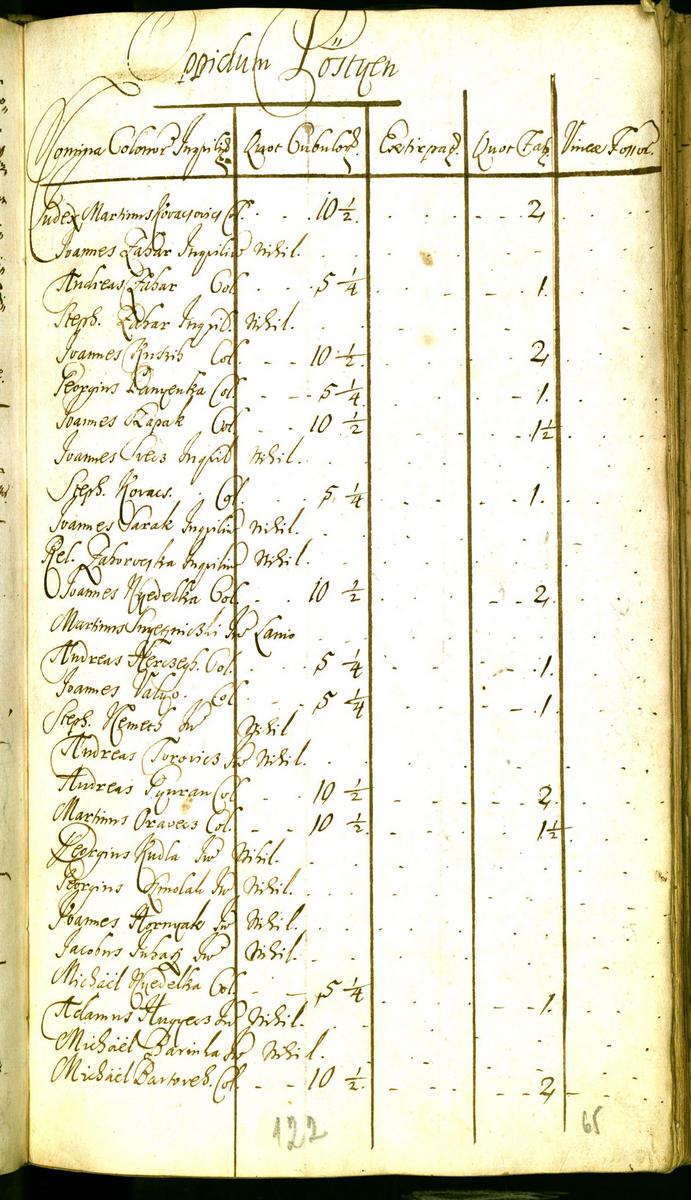 Oppidum Pöstyen
Nomina Colonor. Inquilin. Quot Cubulor. Extirpat. Quot Falc. Vineæ Fossor.
Judex Martinus Kovacsovics Col. 10 1/2 2
Joannes Zahar Inquilin Nihil.
Andreas Zahar Col. 5 1/4 1.
Steph. Zahar Inquil. Nihil.
Joannes Col. 10 1/2 2
Georgius Col. 5 1/4 1.
Joannes Czapak Col 10 1/2 1 1/2
Joannes Svecs Inquil Nihil.
Steph. Kovacs. Col. 5 1/4 1.
Joannes Sarak Inquilin Nihil.
Rel. Zahorveska Inquilin Nihil.
Joannes Nyedelka Col. 10 1/2 2
Martinus Inq Lanio
Andreas Herczegh. Col. 5 1/4 1.
Joannes Valyo. Col. 5 1/4 1
Steph. Nemeth Inq Nihil
Andreas Turovics Inq Nihil.
Andreas Tynran Col 10 1/2 2
Martinus Oravecs Col. 10 1/2 1 1/2
Georgius Kudla Inq Nihil.
Georgius Inq Nihil.
Joannes Hornyak Inq Nihil.
Jacobus Juhasz Inq Nihil.
Michaël Nyedelka Col. 5 1/4 1.
Adamus Inq Nihil.
Michaël Barinka Inq Nihil.
Michaël Bartovch. Col. 10 1/2 2
122 65